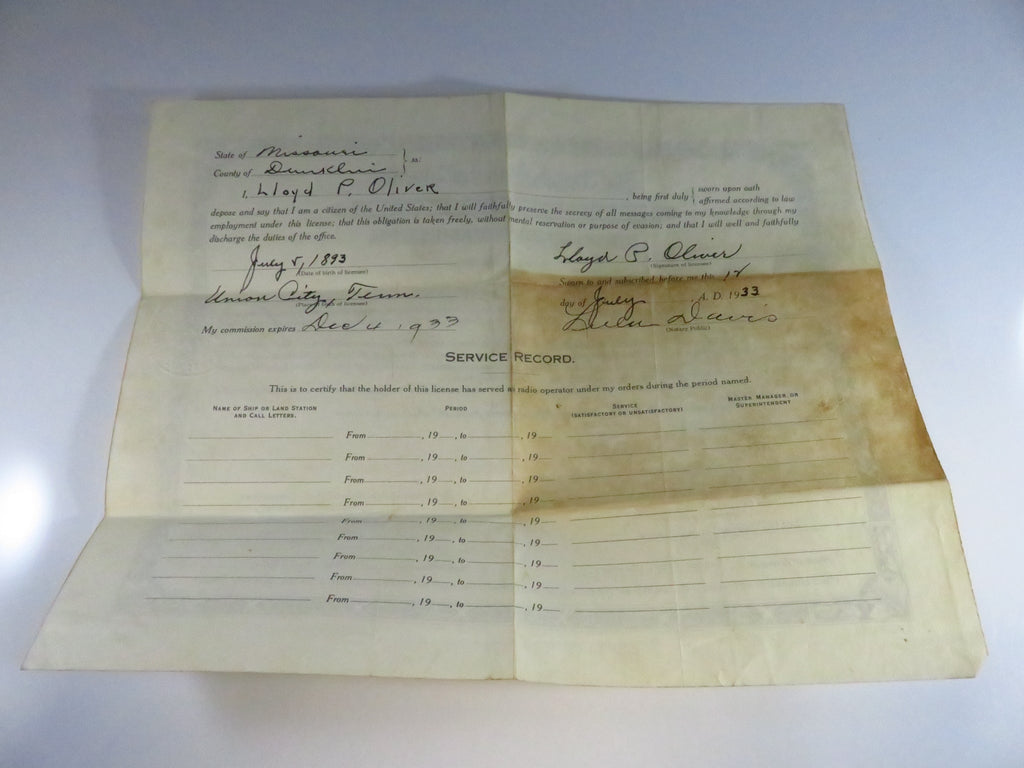 State of Missouri } ss:
County of Dunklin
I, Lloyd P. Oliver, being first duly { sworn upon oath
affirmed according to law
depose and say that I am a citizen of the United States; that I will faithfully preserve the secrecy of all messages coming to my knowledge through my
employment under this license; that this obligation is taken freely, without mental reservation or purpose of evasion; and that I will well and faithfully
discharge the duties of the office.
July 5, 1893
(Date of birth of licensee)
Lloyd P. Oliver
(Signature of licensee)
Union City, Tenn.
(Place of birth of licensee)
Sworn to and subscribed before me this 12
day of July, A. D. 1933
My commission expires Dec 4 1933
Lulu Davis
(Notary Public)
SERVICE RECORD.
This is to certify that the holder of this license has served as radio operator under my orders during the period named.
NAME OF SHIP OR LAND STATION
AND CALL LETTERS.
PERIOD
SERVICE
(SATISFACTORY OR UNSATISFACTORY)
MASTER MANAGER, OR
SUPERINTENDENT
From , 19 , to , 19
From , 19 , to , 19
From , 19 , to , 19
From , 19 , to , 19
From , 19 , to , 19
From , 19 , to , 19
From , 19 , to , 19
From , 19 , to , 19
From , 19 , to , 19